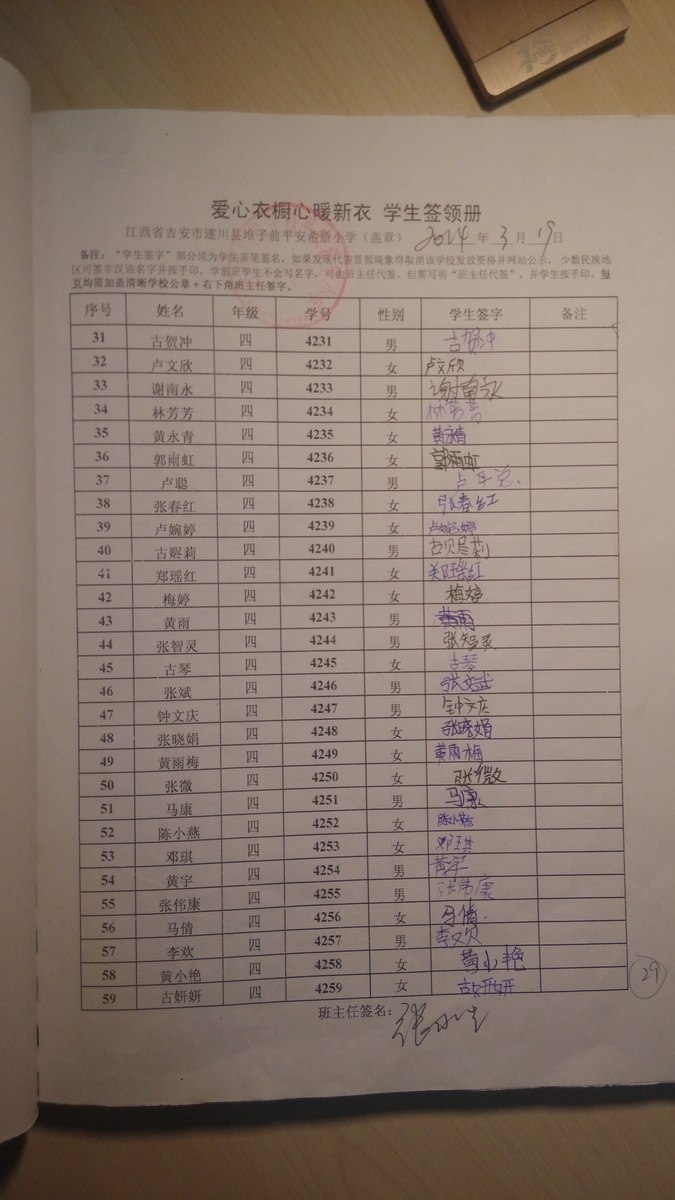 爱心衣橱心暖新衣 学生签领册
江西省吉安市遂川县堆子前平安希望小学（盖章） 2014 年 3 月 19 日
备注："学生签字"部分须为学生亲笔签名，如果发现代签冒领现象将取消该学校发放资格并网站公示， 少数民族地
区可签非汉语名字并按手印，学前班学生不会写名字，可由班主任代签，但需写明"班主任代签"，并学生按手印。每
页均需加盖清晰学校公章+右下角班主任签字。
序号 姓名 年级 学号 性别 学生签字 备注
31 古贺冲 四 4231 男 古贺冲
32 卢文欣 四 4232 女 卢文欣
33 谢南永 四 4233 男 谢南永
34 林芳芳 四 4234 女 林芳芳
35 黄永青 四 4235 女 黄永青
36 郭雨虹 四 4236 女 郭雨虹
37 卢聪 四 4237 男
38 张春红 四 4238 女 张春红
39 卢婉婷 四 4239 女 卢婉婷
40 古赆莉 四 4240 男 古赆莉
41 郑瑶红 四 4241 女 郑瑶红
42 梅婷 四 4242 女 梅婷
43 黄雨 四 4243 男 黄雨
44 张智灵 四 4244 男 张智灵
45 古琴 四 4245 女 古琴
46 张斌 四 4246 男 张斌
47 钟文庆 四 4247 男 钟文庆
48 张晓娟 四 4248 女 张晓娟
49 黄雨梅 四 4249 女 黄雨梅
50 张微 四 4250 女 张微
51 马康 四 4251 男 马康
52 陈小燕 四 4252 女 陈小燕
53 邓琪 四 4253 女 邓琪
54 黄宇 四 4254 男 黄宇
55 张伟康 四 4255 男 张伟康
56 马倩 四 4256 女 马倩.
57 李欢 四 4257 男 李欢
58 黄小艳 四 4258 女 黄小艳
59 古妍妍 四 4259 女 古妍妍
29
班主任签名：